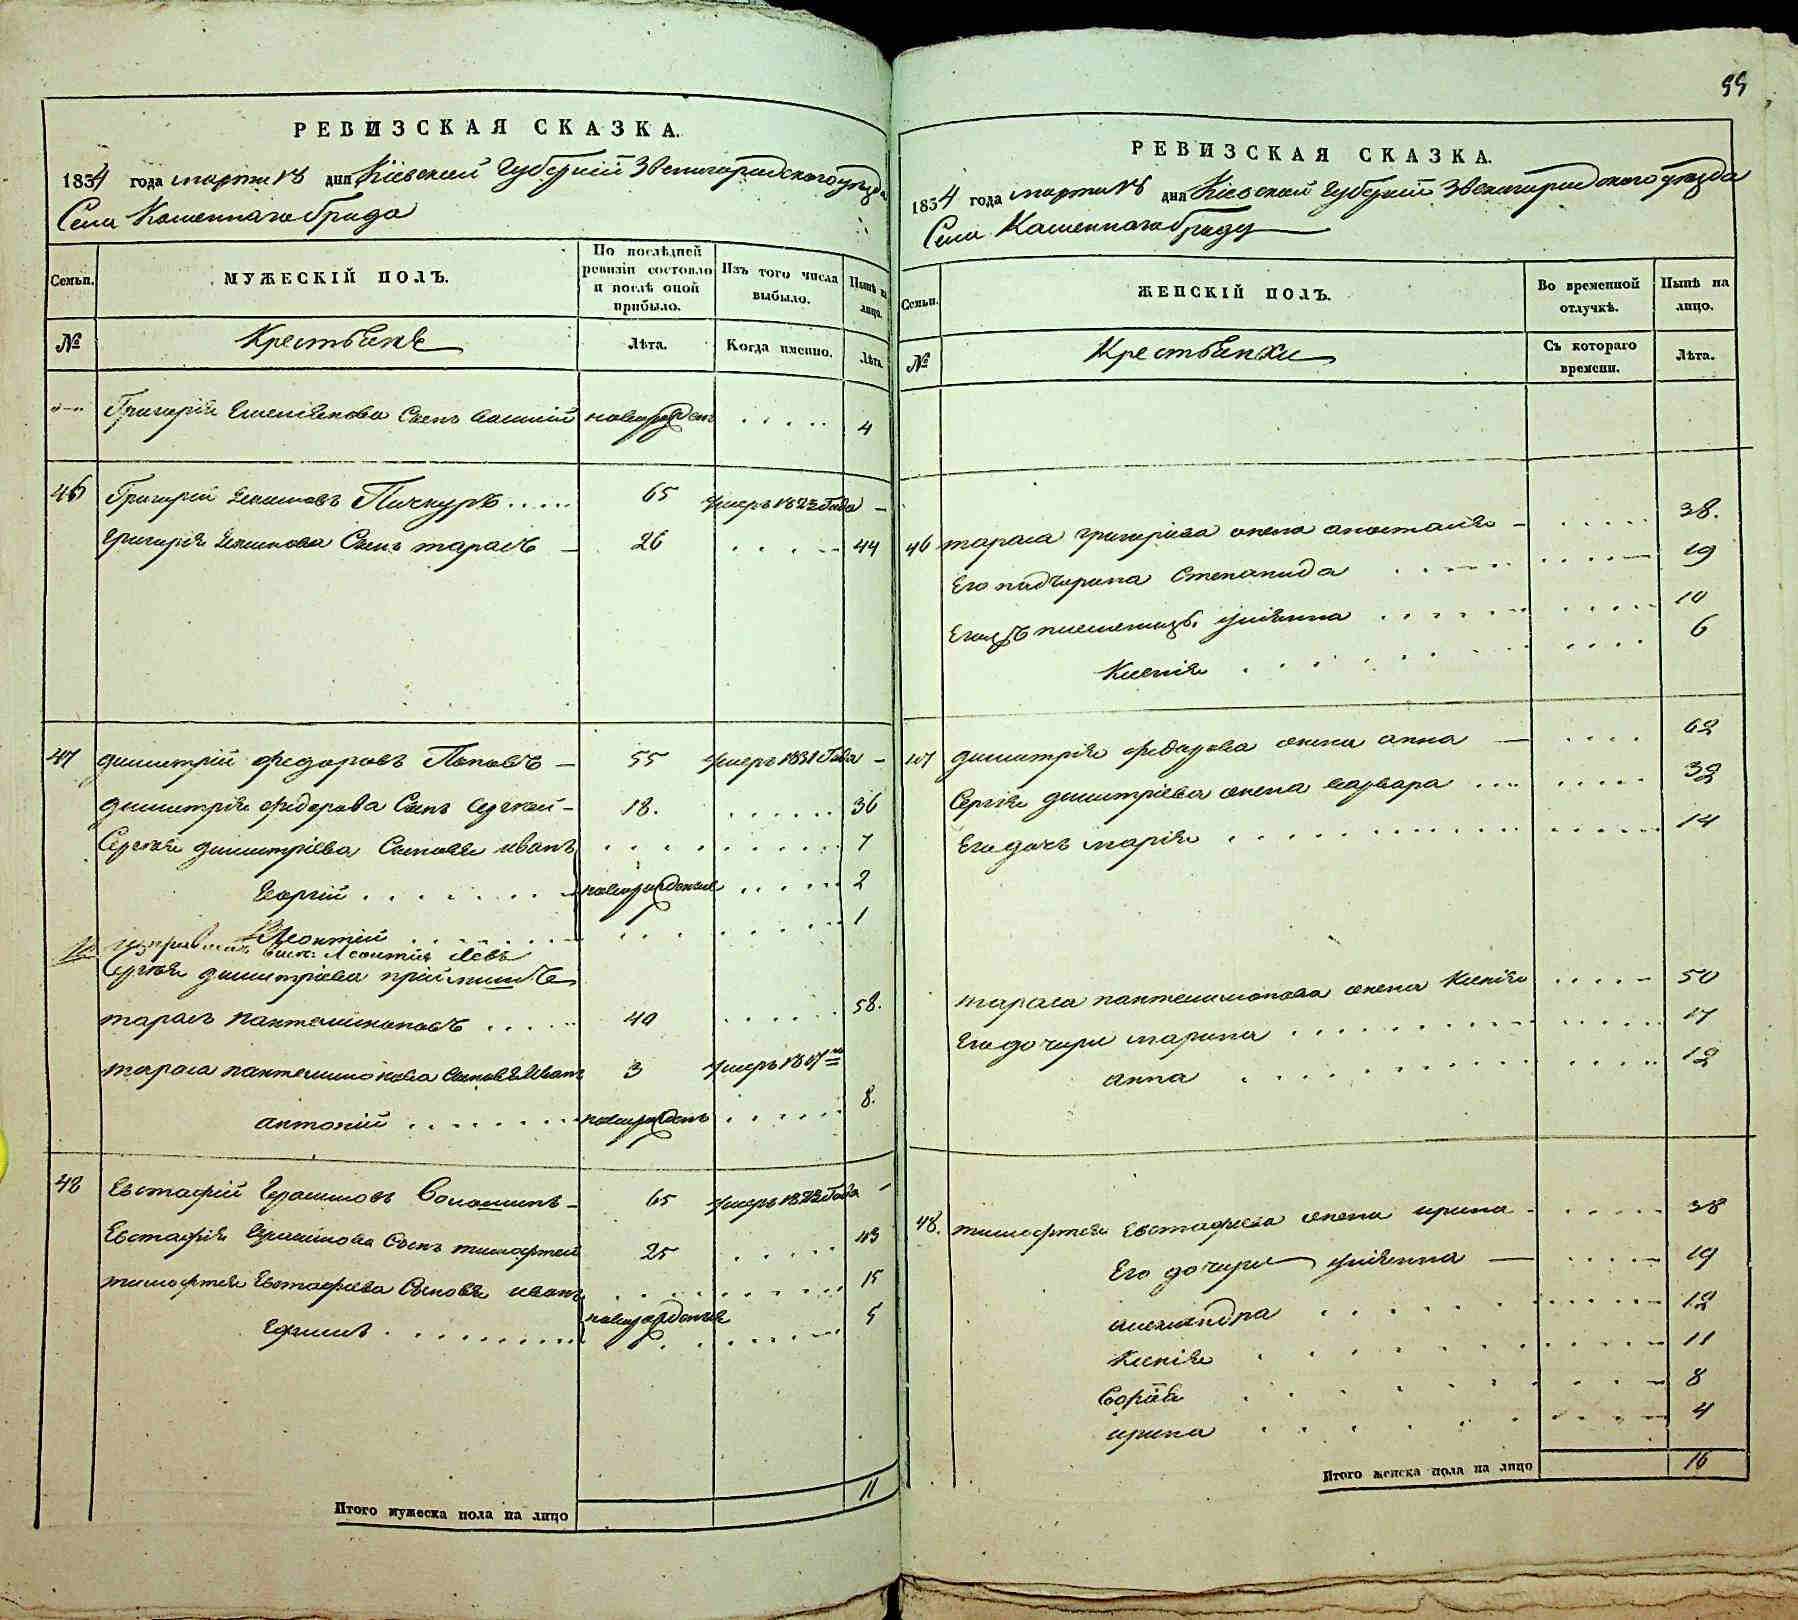 РЕВИЗСКАЯ СКАЗКА.
1834 года марта 18 дня Кіевской Губерніи Звенигородскаго уѣзда
Села Каменнаго Броду
Семьи.
МУЖЕСКІЙ ПОЛЪ.
По послѣдней ревизіи состояло и послѣ оной прибыло.
Изъ того числа выбыло.
Нынѣ на лицо.
№
Крестьяне
Лѣта.
Когда именно.
Лѣта.
Григорія Емельянова Сынъ Василій новорожденъ 4
46 Григорій Якимовъ Пичкуръ 65 умеръ 1822 Года
Григорія Якимова Сынъ тарасъ 26 44
47 димитрій федоровъ Поповъ 55 умеръ 1831 Года
димитрія федорова Сынъ Сергей 18. 36
Сергея димитріева Сыновья иванъ 7
Георгій новорожденные 2
Леонтій 1
Леонтія Левъ
Сергея димитріева пріймышъ
тарасъ пантелимоновъ 40 58.
тараса пантелимонова Сыновья Иванъ 3 умеръ 1817
антоній новорожденъ 8.
48 Евстафій Герасимовъ 65 умеръ 1822 Года
Евстафія Герасимова Сынъ тимофтей 25 43
тимофтея Евстафіева Сыновья иванъ 15
Ефимъ новорожденные 5
Итого мужеска пола на лицо 11
55
РЕВИЗСКАЯ СКАЗКА.
1834 года марта 18 дня Кіевской Губерніи Звенигородскаго уѣзда
Села Каменнаго Броду
Семьи.
ЖЕНСКІЙ ПОЛЪ.
Во временной отлучкѣ.
Нынѣ на лицо.
№
Крестьянки
Съ котораго времени.
Лѣта.
46 тараса григоріева жена анастасія 38.
Его падчерица Степанида 19
Егожъ племянницы ульянна 10
Ксенія 6
47 димитрія федорова жена анна 62
Сергея димитріева жена варвара 32
Его дочь марія 14
тараса пантелимонова жена Ксенія 50
Его дочери марина 17
анна 12
48. тимофтея Евстафіева жена ирина 38
Его дочери ульянна 19
александра 12
Ксенія 11
Софія 8
ирина 4
Итого женска пола на лицо 16